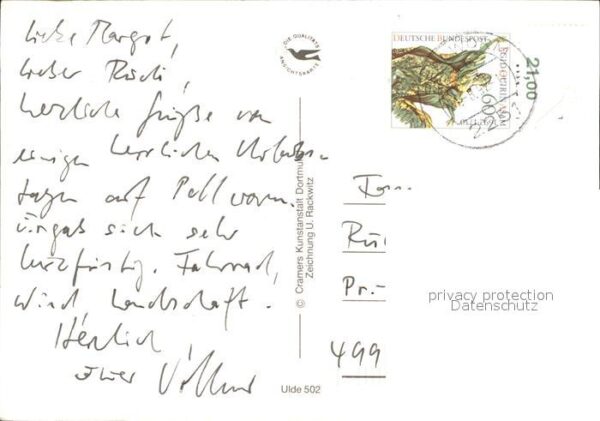 Liebe Margot,
lieber Rudi,
herzliche Grüße von
einigen herrlichen Urlaubs-
tagen auf Pellworm.
ergab sich sehr
kurzfristig. Fahrrad,
Wind, Landschaft.
Herzlich,
Euer Volkmar
DIE QUALITÄTS
ANSICHTSKARTE
© Cramers Kunstanstalt Dortmund
Zeichnung U. Rackwitz
Ulde 502
DEUTSCHE BUNDESPOST
EGID QUIRIN ASAM
60
21,00
Fam.
Pr.-
499
privacy protection
Datenschutz